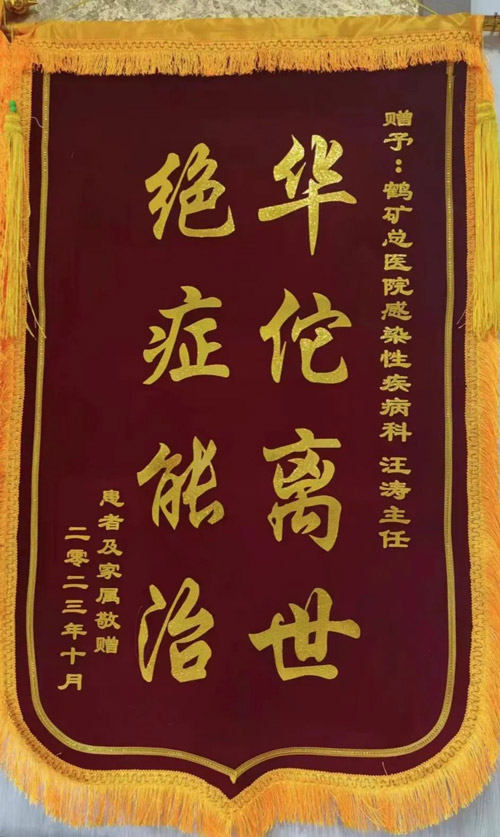 赠予：鹤矿总医院感染性疾病科 汪涛主任
华佗离世
绝症能治
患者及家属敬赠
二零二三年十月